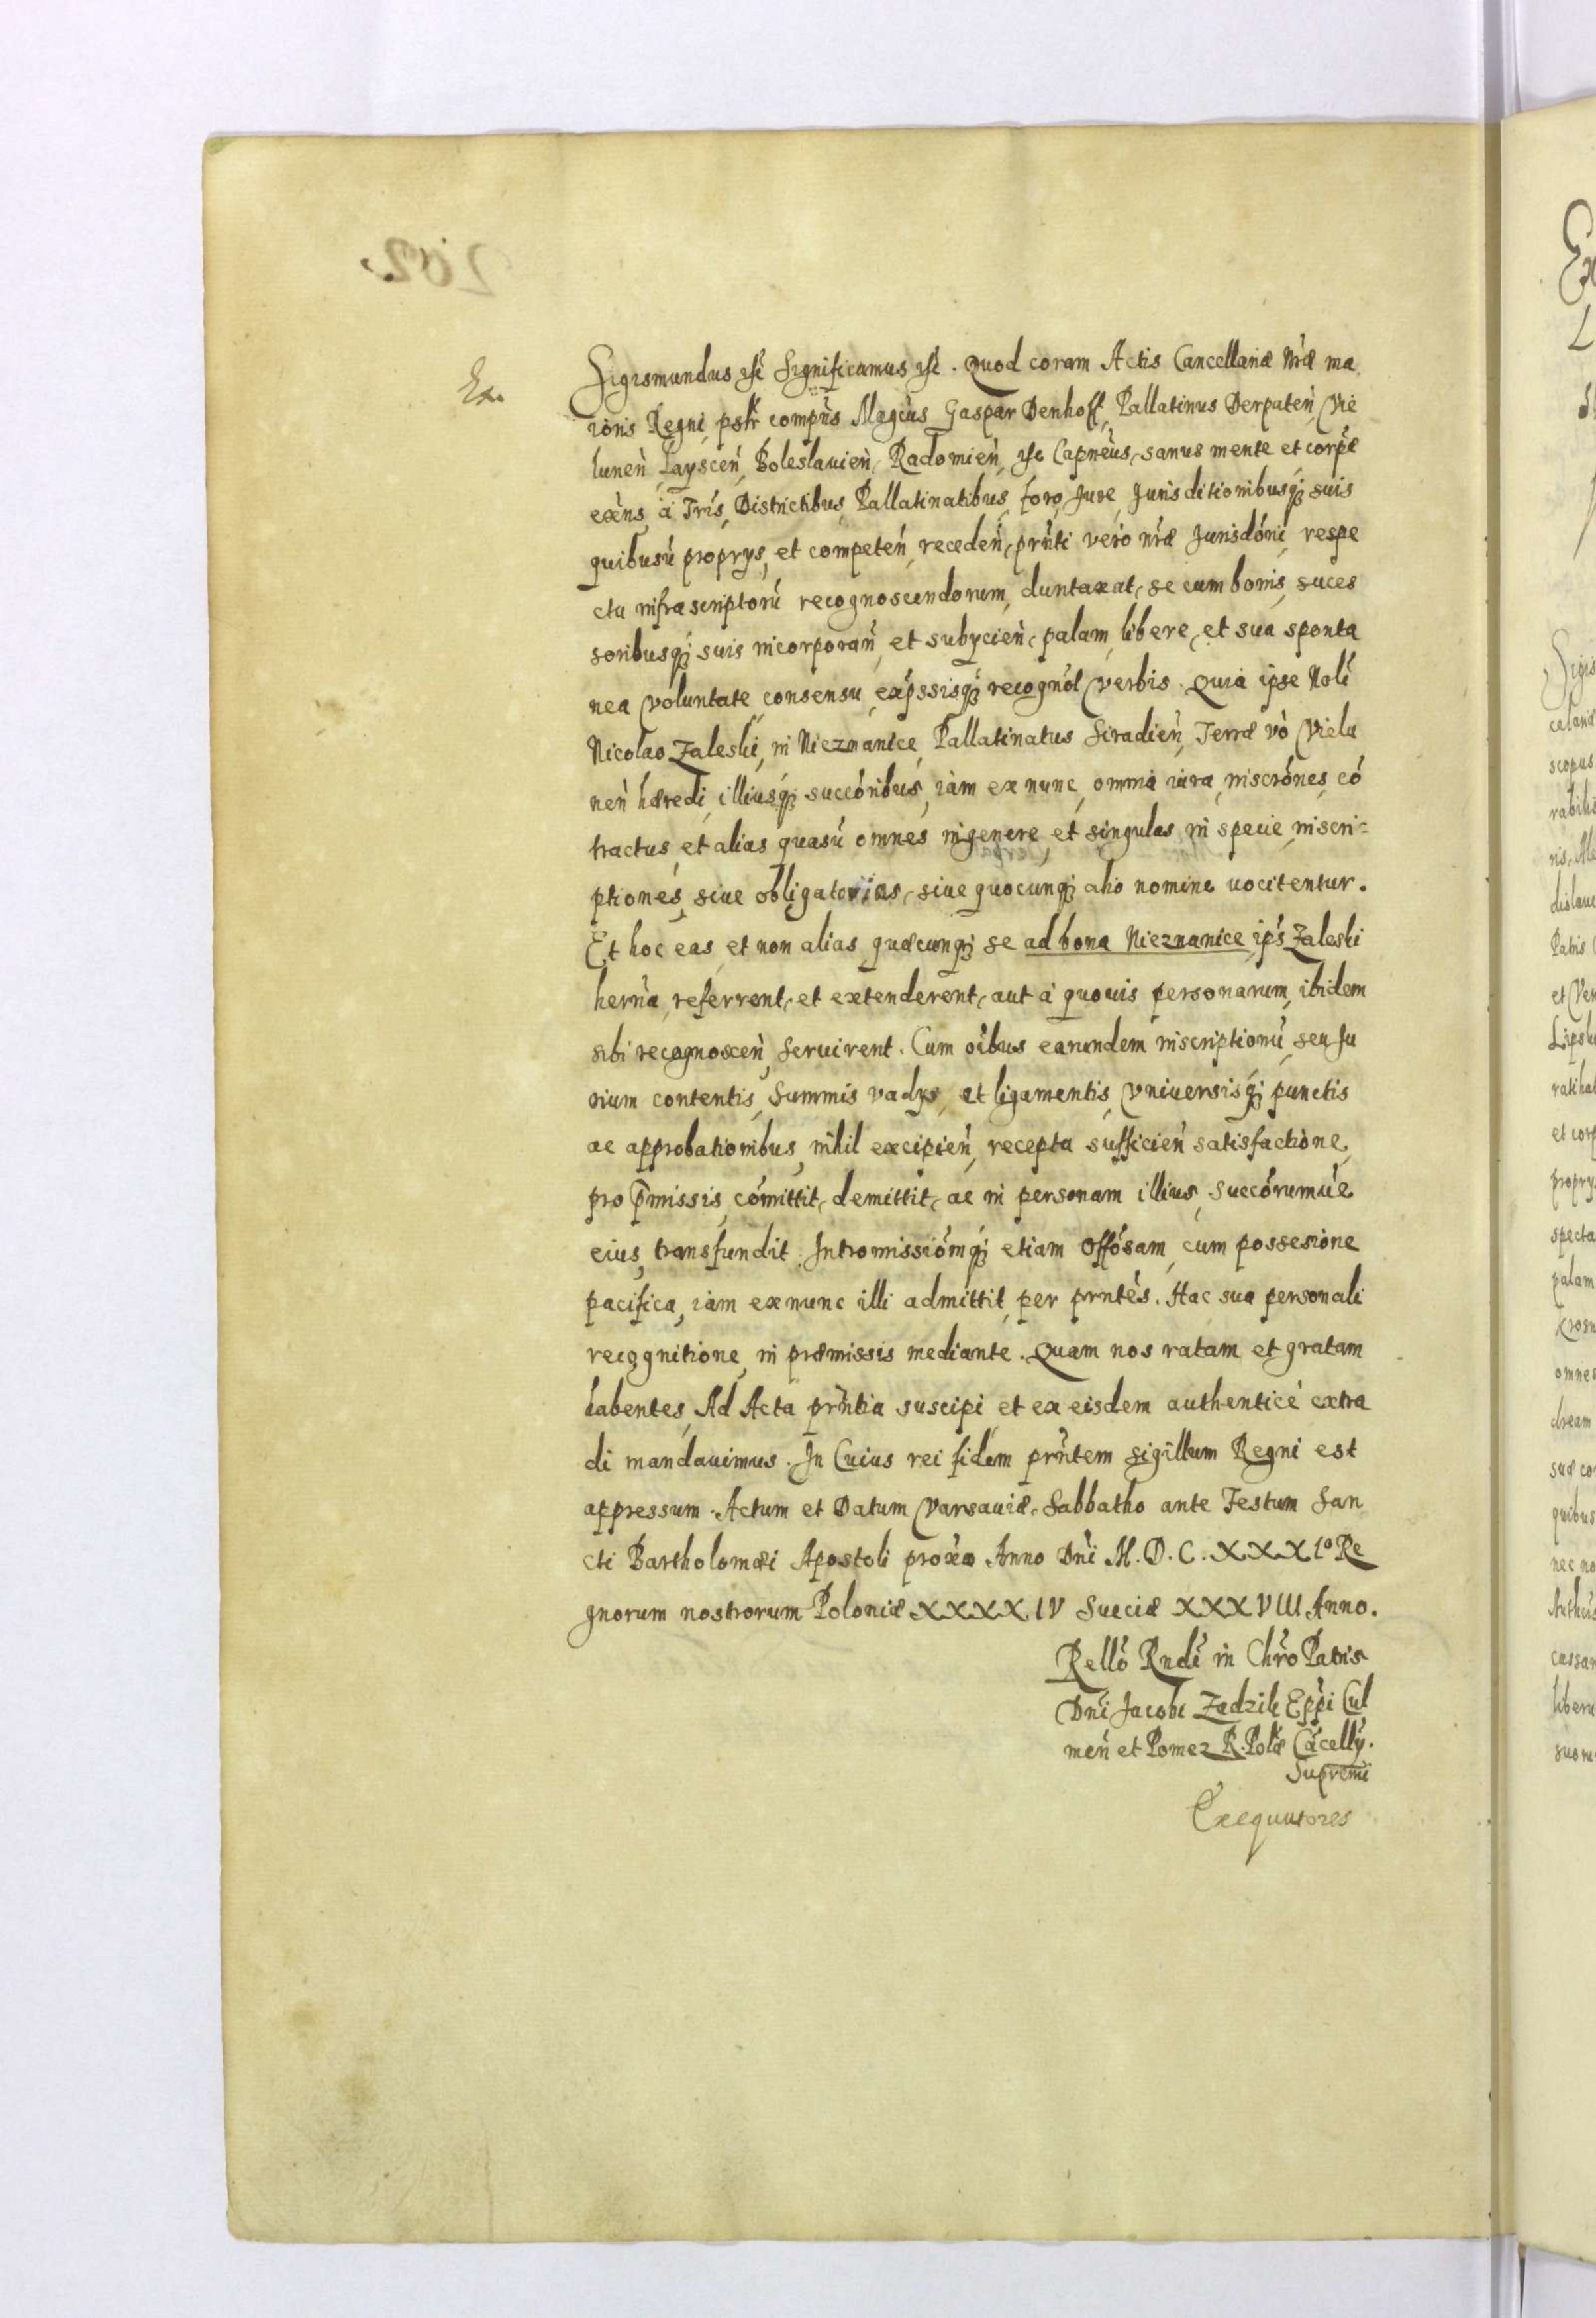 Ex.
Sigismundus etc Significamus etc. Quod coram Actis Cancellariæ Nr̃æ ma
ioris Regni, psr̃ compñs Magcus Gaspar Denhoff, Pallatinus Derpateñ, Vie
luneñ Layseeñ, Boleslauieñ, Radomieñ, etc Capneus, sanus mente et corpe
exñs, à Tris, Districtibus, Pallatinatibus, foro, Jure, Jurisditionibusq suis
quibusũ proprys, et competeñ, recedeñ, prñti vero nr̃æ Jurisdõni, respe
ctu infrascriptorũ recognoscendorum, duntaxat, se cum bonis, suces
soribusq suis incorporañ, et subycieñ, palam, libere, et sua sponta
nea voluntate, consensu, expssisq recognõt verbis. Quia ipse Noli
Nicolao Zaleski, in Nieznanice, Pallatinatus Siradieñ, Terræ vò Vielu
neñ hæredi, illiusq succõribus, iàm ex nunc, omnia iura, inscrõnes, cõ
tractus, et alias quasũ omnes in genere, et singulas, in specie, inscri=
ptiones, siue obligatorias, siue quocunq alio nomine uocitentur.
Et hoc eas, et non alias, quæcunq se ad bona Nieznanice, ips Zaleski
herña, referrent, et extenderent, aut à quouis personarum, ibidem
sibi recognosceñ, seruirent. Cum oĩbus earundem inscriptionũ, seu Iu
rium contentis, Summis vadys, et ligamentis, Vniuersisq punctis
ac approbationibus, nihil excipieñ, recepta sufficieñ satisfactione,
pro p̃missis, cõmittit, demittit, ac in personam illius, succõrumúe
eius, transfundit. Intromissiõmq etiam offõsam, cum possesione
pacifica, iàm ex nunc illi admittit, per prntes. Hac sua personali
recognitione, in præmissis mediante. Quam nos ratam et gratam
habentes, Ad Acta prñtia suscipi et ex eisdem authenticè extra
di mandauimus. In Cuius rei fidem prñtem sigillum Regni est
appressum. Actum et Datum Varsauiæ, Sabbatho ante Festum San
cti Bartholomæi Apostoli proxo Anno Dñi M.D.C.XXX1º Re
gnorum nostrorum Poloniæ XXXXIV Sueciæ XXXVIII Anno.
Rellõ Rndi in Chr̃o Patris
Dñi Jacobi Zadzik Eppi Cul
meñ et Pomez R. Polæ Cãcelly.
Supremi
Exequutores